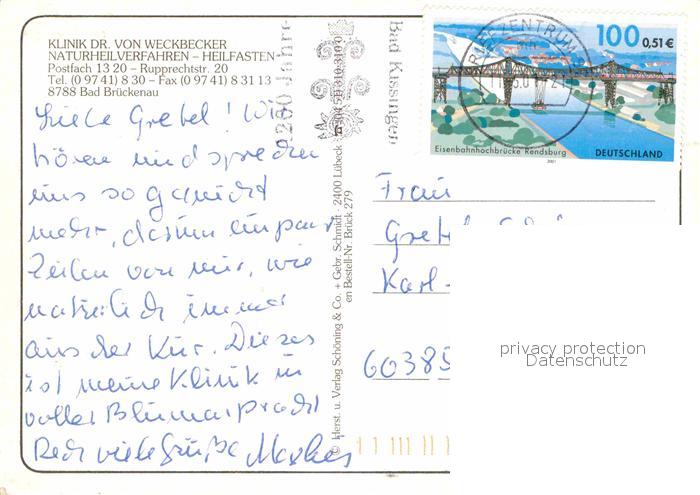 KLINIK DR. VON WECKBECKER
NATURHEILVERFAHREN – HEILFASTEN
Postfach 13 20 – Rupprechtstr. 20
Tel. (0 97 41) 8 30 – Fax (0 97 41) 8 31 13
8788 Bad Brückenau
Liebe Gretel! Wir
hören und sprechen
uns so garnicht
mehr, darum ein paar
Zeilen von mir, wie
natürlich immer
aus der Kur. Dieses
ist meine Klinik in
voller Blütenpracht
Recht viele Grüße
© Herst. u. Verlag Schöning & Co. + Gebr. Schmidt · 2400 Lübeck
en Bestell-Nr. Brück 279
1200 Jahre
Bad Kissingen
BRIEFZENTRUM
100 0,51€
Eisenbahnhochbrücke Rendsburg
2001
DEUTSCHLAND
Frau
Gretel
Karl-
60385
privacy protection
Datenschutz